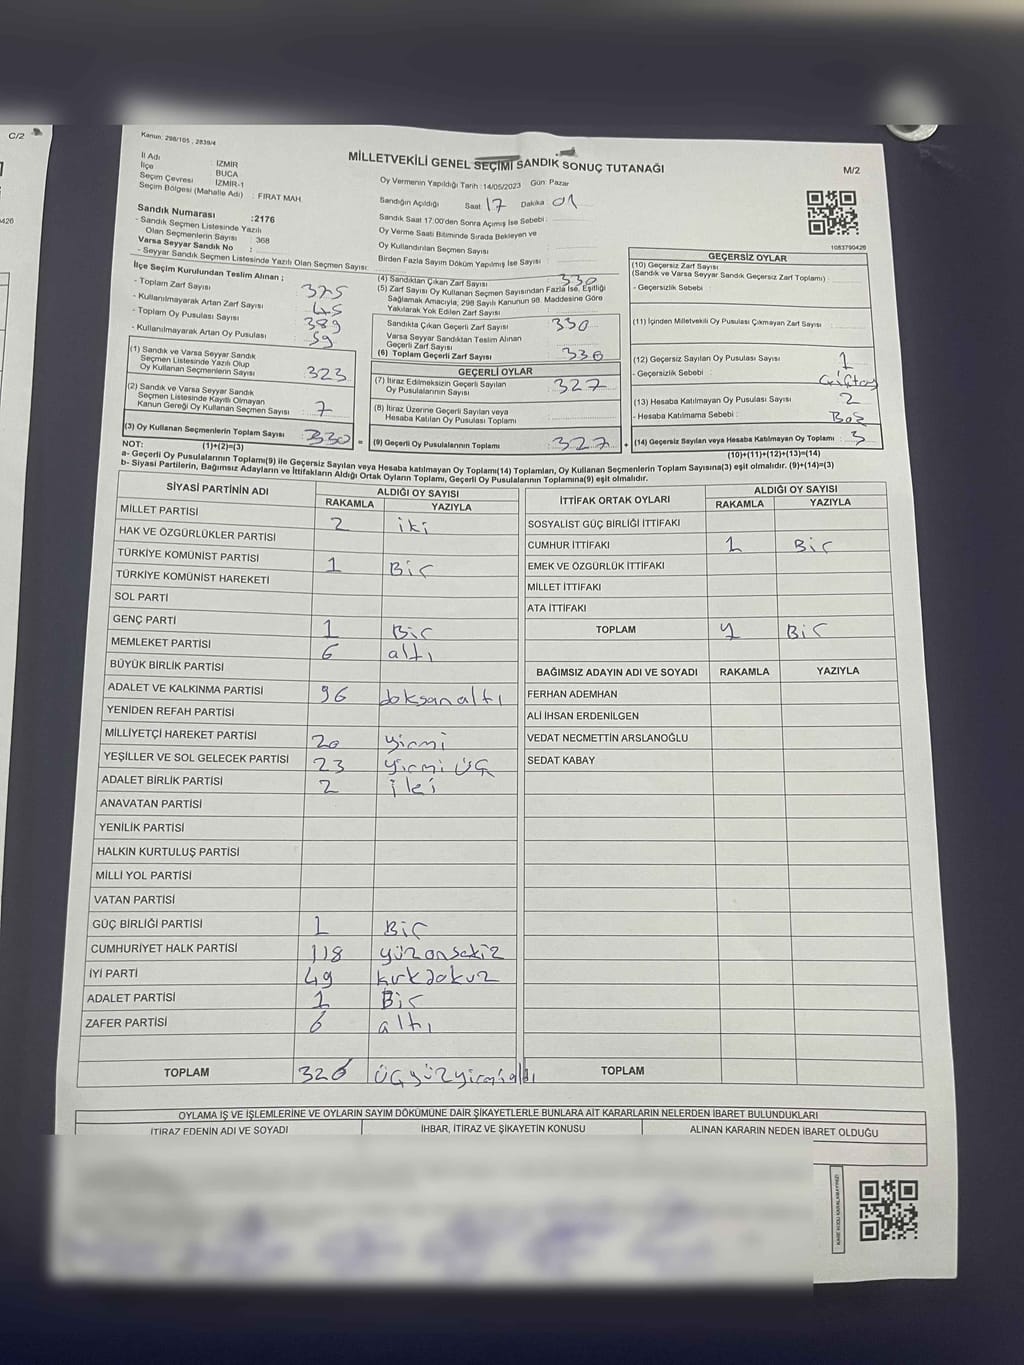 C/2
Kanun: 298/105 , 2839/4
MİLLETVEKİLİ GENEL SEÇİMİ SANDIK SONUÇ TUTANAĞI
M/2
İl Adı : İZMİR
İlçe : BUCA
Seçim Çevresi : İZMİR-1
Seçim Bölgesi (Mahalle Adı) : FIRAT MAH.
Sandık Numarası :2176
- Sandık Seçmen Listesinde Yazılı
Olan Seçmenlerin Sayısı : 368
Varsa Seyyar Sandık No :
- Seyyar Sandık Seçmen Listesinde Yazılı Olan Seçmen Sayısı:
Oy Vermenin Yapıldığı Tarih :14/05/2023 Gün: Pazar
Sandığın Açıldığı Saat 17 Dakika 01
Sandık Saat 17:00'den Sonra Açımış İse Sebebi :
Oy Verme Saati Bitiminde Sırada Bekleyen ve
Oy Kullandırılan Seçmen Sayısı
Birden Fazla Sayım Döküm Yapılmış İse Sayısı :
1083790426
İlçe Seçim Kurulundan Teslim Alınan ;
- Toplam Zarf Sayısı : 375
- Kullanılmayarak Artan Zarf Sayısı : 45
- Toplam Oy Pusulası Sayısı : 389
- Kullanılmayarak Artan Oy Pusulası : 59
(1) Sandık ve Varsa Seyyar Sandık
Seçmen Listesinde Yazılı Olup
Oy Kullanan Seçmenlerin Sayısı : 323
(2) Sandık ve Varsa Seyyar Sandık
Seçmen Listesinde Kayıtlı Olmayan
Kanun Gereği Oy Kullanan Seçmen Sayısı : 7
(3) Oy Kullanan Seçmenlerin Toplam Sayısı : 330 =
(4) Sandıktan Çıkan Zarf Sayısı : 330
(5) Zarf Sayısı Oy Kullanan Seçmen Sayısından Fazla İse, Eşitliği
Sağlamak Amacıyla, 298 Sayılı Kanunun 98. Maddesine Göre
Yakılarak Yok Edilen Zarf Sayısı :
Sandıkta Çıkan Geçerli Zarf Sayısı : 330
Varsa Seyyar Sandıktan Teslim Alınan
Geçerli Zarf Sayısı
(6) Toplam Geçerli Zarf Sayısı : 330
GEÇERLİ OYLAR
(7) İtiraz Edilmeksizin Geçerli Sayılan
Oy Pusulalarının Sayısı : 327
(8) İtiraz Üzerine Geçerli Sayılan veya
Hesaba Katılan Oy Pusulaları Toplamı
(9) Geçerli Oy Pusulalarının Toplamı : 327 +
GEÇERSİZ OYLAR
(10) Geçersiz Zarf Sayısı
(Sandık ve Varsa Seyyar Sandık Geçersiz Zarf Toplamı) :
- Geçersizlik Sebebi :
(11) İçinden Milletvekili Oy Pusulası Çıkmayan Zarf Sayısı :
(12) Geçersiz Sayılan Oy Pusulası Sayısı : 1
- Geçersizlik Sebebi :
(13) Hesaba Katılmayan Oy Pusulası Sayısı : 2
- Hesaba Katılmama Sebebi : Boş
(14) Geçersiz Sayılan veya Hesaba Katılmayan Oy Toplamı : 3
NOT: (1)+(2)=(3)
(10)+(11)+(12)+(13)=(14)
a- Geçerli Oy Pusulalarının Toplamı(9) ile Geçersiz Sayılan veya Hesaba katılmayan Oy Toplamı(14) Toplamları, Oy Kullanan Seçmenlerin Toplam Sayısına(3) eşit olmalıdır. (9)+(14)=(3)
b- Siyasi Partilerin, Bağımsız Adayların ve İttifakların Aldığı Ortak Oyların Toplamı, Geçerli Oy Pusulalarının Toplamına(9) eşit olmalıdır.
SİYASİ PARTİNİN ADI ALDIĞI OY SAYISI
RAKAMLA YAZIYLA
MİLLET PARTİSİ 2 iki
HAK VE ÖZGÜRLÜKLER PARTİSİ
TÜRKİYE KOMÜNİST PARTİSİ 1 Bir
TÜRKİYE KOMÜNİST HAREKETİ
SOL PARTİ
GENÇ PARTİ 1 Bir
MEMLEKET PARTİSİ 6 altı
BÜYÜK BİRLİK PARTİSİ
ADALET VE KALKINMA PARTİSİ 96 doksan altı
YENİDEN REFAH PARTİSİ
MİLLİYETÇİ HAREKET PARTİSİ 20 yirmi
YEŞİLLER VE SOL GELECEK PARTİSİ 23 yirmi üç
ADALET BİRLİK PARTİSİ 2 iki
ANAVATAN PARTİSİ
YENİLİK PARTİSİ
HALKIN KURTULUŞ PARTİSİ
MİLLİ YOL PARTİSİ
VATAN PARTİSİ
GÜÇ BİRLİĞİ PARTİSİ 1 Bir
CUMHURİYET HALK PARTİSİ 118 yüzonsekiz
İYİ PARTİ 49 kırkdokuz
ADALET PARTİSİ 1 Bir
ZAFER PARTİSİ 6 altı
TOPLAM 326 üçyüzyirmialtı
İTTİFAK ORTAK OYLARI ALDIĞI OY SAYISI
RAKAMLA YAZIYLA
SOSYALİST GÜÇ BİRLİĞİ İTTİFAKI
CUMHUR İTTİFAKI 1 Bir
EMEK VE ÖZGÜRLÜK İTTİFAKI
MİLLET İTTİFAKI
ATA İTTİFAKI
TOPLAM 1 Bir
BAĞIMSIZ ADAYIN ADI VE SOYADI RAKAMLA YAZIYLA
FERHAN ADEMHAN
ALİ İHSAN ERDENİLGEN
VEDAT NECMETTİN ARSLANOĞLU
SEDAT KABAY
TOPLAM
OYLAMA İŞ VE İŞLEMLERİNE VE OYLARIN SAYIM DÖKÜMÜNE DAİR ŞİKAYETLERLE BUNLARA AİT KARARLARIN NELERDEN İBARET BULUNDUKLARI
İTİRAZ EDENİN ADI VE SOYADI İHBAR, İTİRAZ VE ŞİKAYETİN KONUSU ALINAN KARARIN NEDEN İBARET OLDUĞU